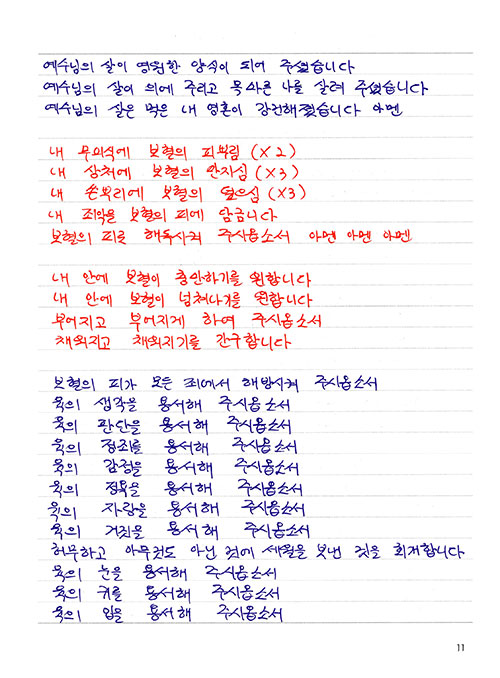 예수님의 살이 영원한 양식이 되어 주셨습니다
예수님의 살이 의에 주리고 목마른 나를 살려 주셨습니다
예수님의 살은 먹은 내 영혼이 강건해졌습니다 아멘
내 무의식에 보혈의 피뿌림 (X2)
내 상처에 보혈의 만지심 (X3)
내 쓴뿌리에 보혈의 덮으심 (X3)
내 죄악을 보혈의 피에 담금니다
보혈의 피로 해독시켜 주시옵소서 아멘 아멘 아멘
내 안에 보혈이 충만하기를 원합니다
내 안에 보혈이 넘쳐나기를 원합니다
부어지고 부어지게 하여 주시옵소서
채워지고 채워지기를 간구합니다
보혈의 피가 모든 죄에서 해방시켜 주시옵소서
육의 생각을 용서해 주시옵소서
육의 판단을 용서해 주시옵소서
육의 정죄를 용서해 주시옵소서
육의 감정을 용서해 주시옵소서
육의 정욕을 용서해 주시옵소서
육의 자랑을 용서해 주시옵소서
육의 거짓을 용서해 주시옵소서
허무하고 아무것도 아닌 것에 세월을 보낸 것을 회개합니다
육의 눈을 용서해 주시옵소서
육의 귀를 용서해 주시옵소서
육의 입을 용서해 주시옵소서
11